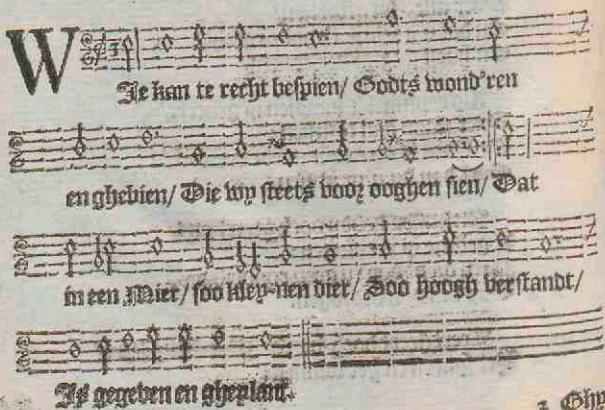 WIe kan te recht bespien/ Godts wond'ren
en ghebien/ Die wy steets voor ooghen sien/ Dat
in een Mier/ soo kley-nen dier/ Soo hoogh verstandt/
Is gegeven en gheplant.
2. Ghy